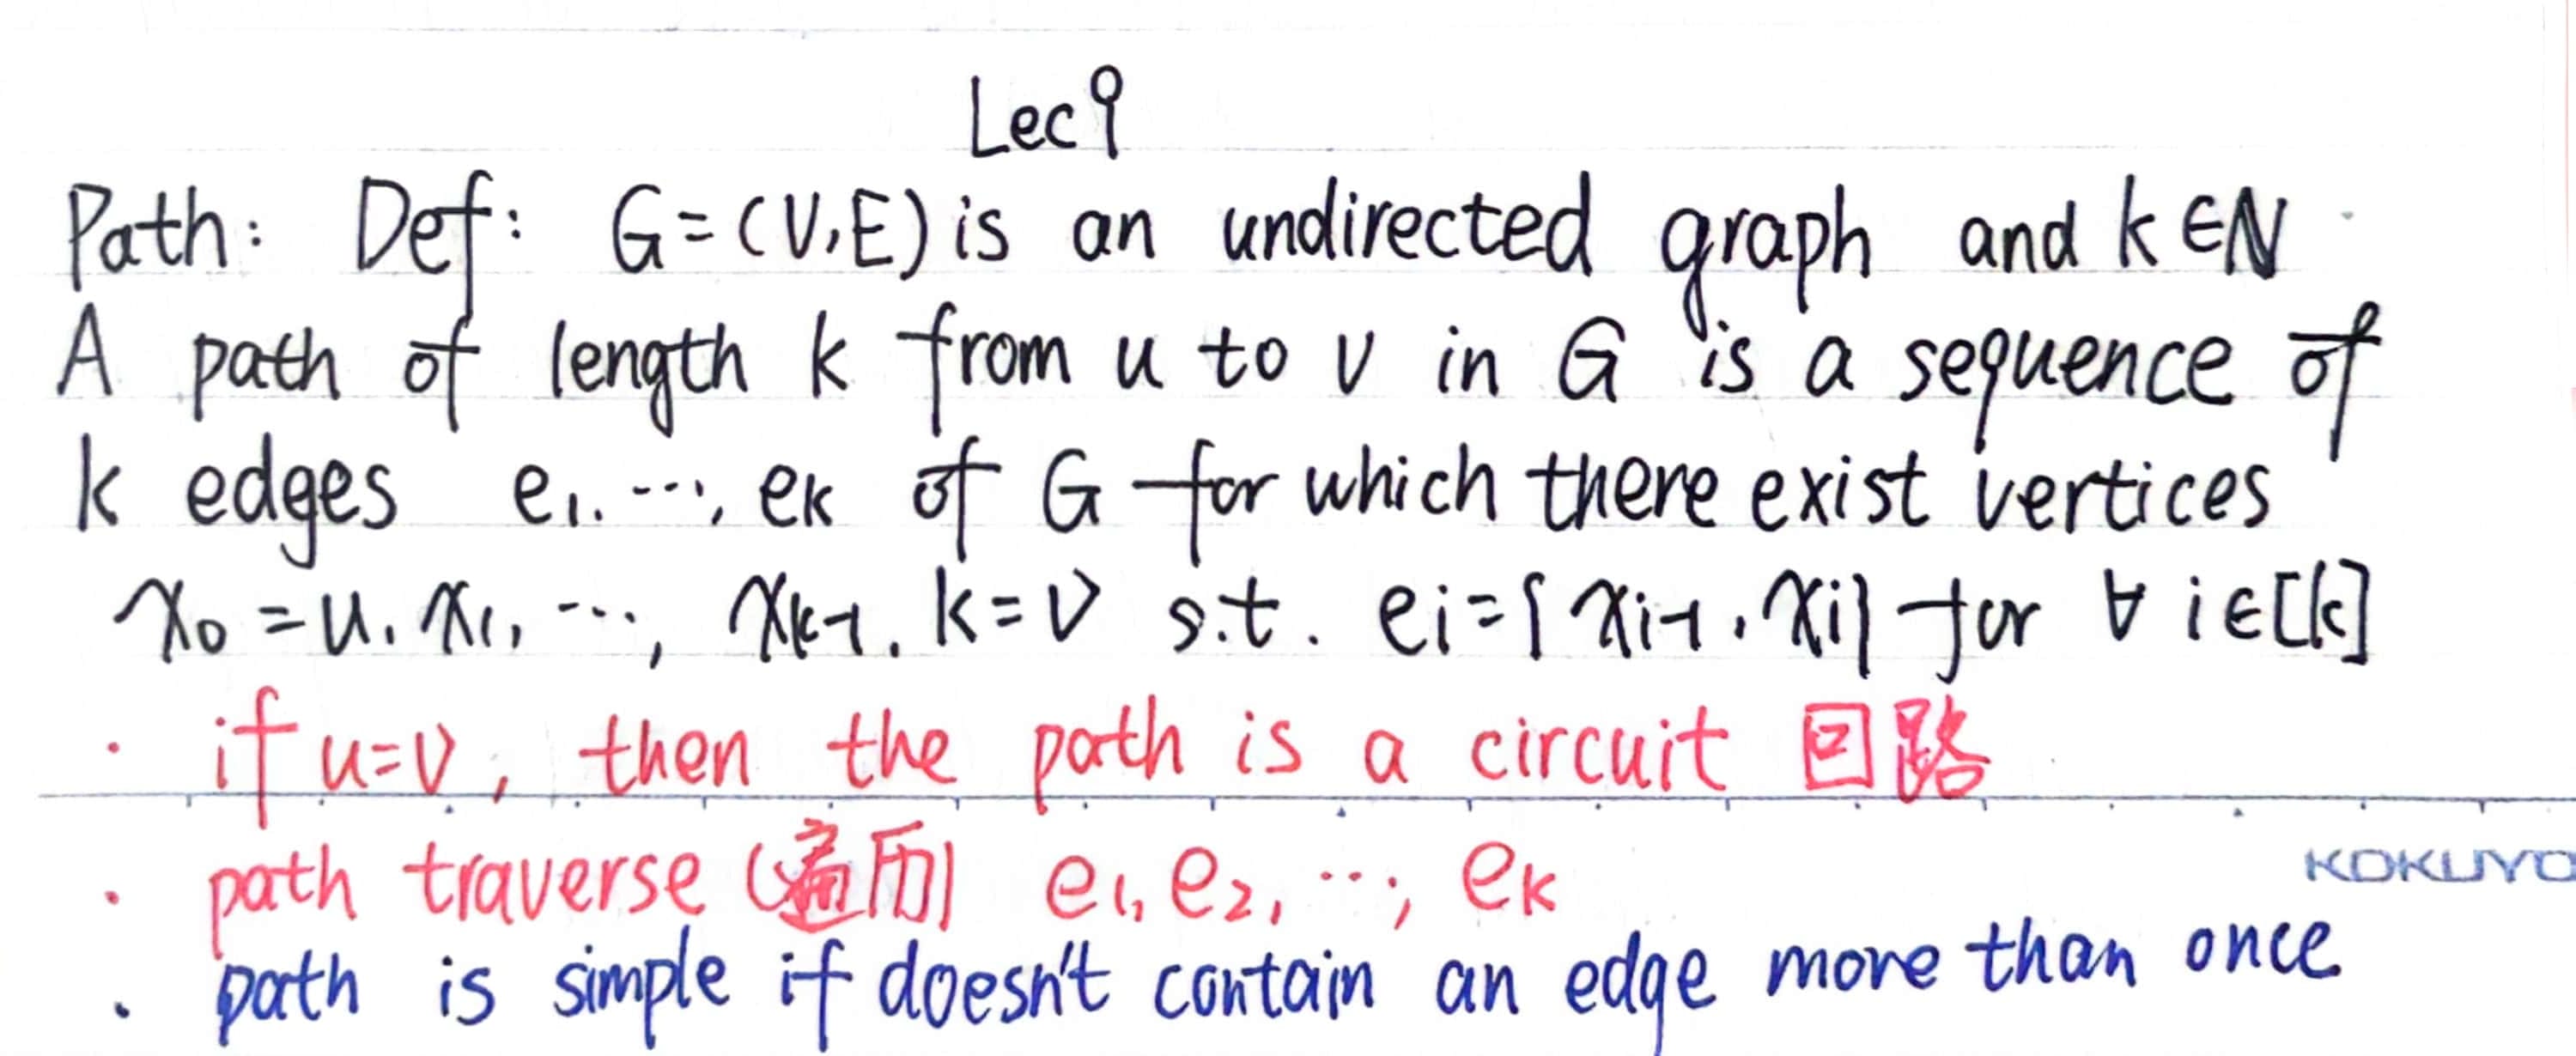 Lec 9
Path: Def: G=(V,E) is an undirected graph and k∈ℕ
A path of length k from u to v in G is a sequence of
k edges e₁, ⋯, eₖ of G for which there exist vertices
x₀=u, x₁, ⋯, xₖ₋₁, k=v s.t. eᵢ={xᵢ₋₁, xᵢ} for ∀ i∈[k]
· if u=v, then the path is a circuit 回路
· path traverse (遍历) e₁, e₂, ⋯, eₖ
KOKUYO
· path is simple if doesn't contain an edge more than once